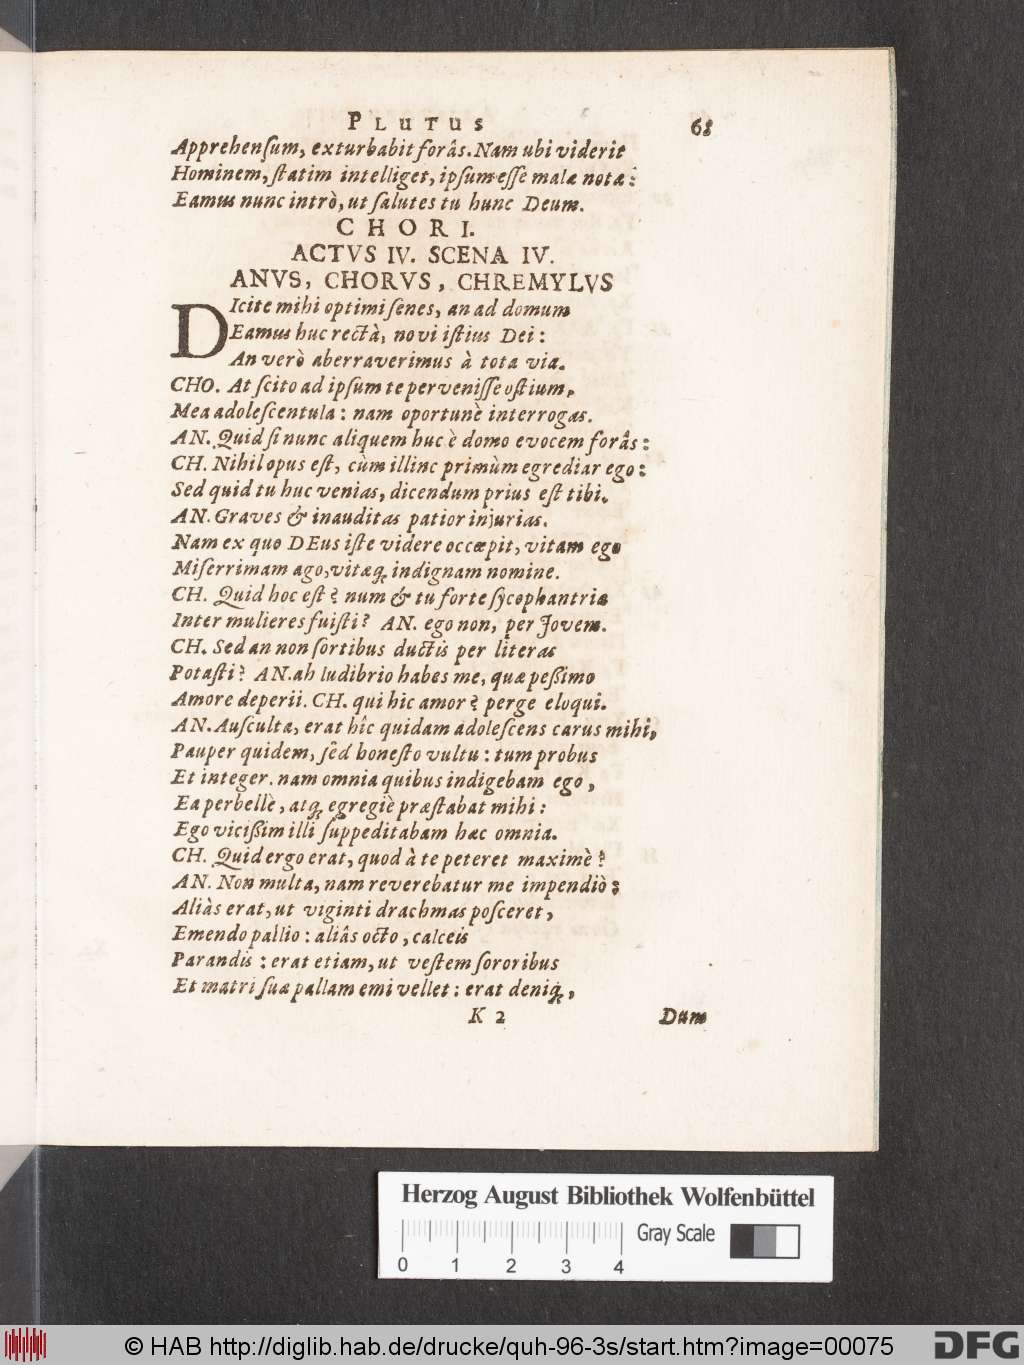 PLUTUS 68
Apprehenſum, exturbabit forâs. Nam ubi viderit
Hominem, ſtatim intelliget, ipſum eſſe malæ notæ:
Eamus nunc intrò, ut ſalutes tu hunc Deum.
CHORI.
ACTVS IV. SCENA IV.
ANVS, CHORVS, CHREMYLVS
DIcite mihi optimi ſenes, an ad domum
Eamus huc rectà, novi iſtius Dei:
An verò aberraverimus à tota via.
CHO. At ſcito ad ipſum te perveniſſe oſtium,
Mea adoleſcentula: nam oportunè interrogas.
AN. Quid ſi nunc aliquem huc è domo evocem forâs:
CH. Nihil opus eſt, cùm illinc primùm egrediar ego:
Sed quid tu huc venias, dicendum prius eſt tibi.
AN. Graves & inauditas patior injurias.
Nam ex quo DEus iſte videre occœpit, vitam ego
Miſerrimam ago, vitæq; indignam nomine.
CH. Quid hoc eſt? num & tu forte ſycophantria
Inter mulieres fuiſti? AN. ego non, per Jovem.
CH. Sed an non ſortibus ductis per literas
Potaſti? AN. ah ludibrio habes me, quæ peßimo
Amore deperii. CH. qui hic amor? perge eloqui.
AN. Auſculta, erat hîc quidam adoleſcens carus mihi,
Pauper quidem, ſed honeſto vultu: tum probus
Et integer. nam omnia quibus indigebam ego,
Ea perbellè, atq; egregiè præſtabat mihi:
Ego vicißim illi ſuppeditabam hæc omnia.
CH. Quid ergo erat, quod à te peteret maximè?
AN. Non multa, nam reverebatur me impendiò;
Aliàs erat, ut viginti drachmas poſceret,
Emendo pallio: aliâs octo, calceis
Parandis: erat etiam, ut veſtem ſororibus
Et matri ſuæ pallam emi vellet: erat deniq;,
K 2 Dum
Herzog August Bibliothek Wolfenbüttel
Gray Scale
0 1 2 3 4
© HAB http://diglib.hab.de/drucke/quh-96-3s/start.htm?image=00075
DFG